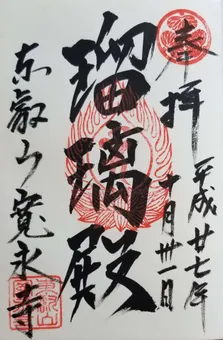 奉拝
平成廿七年
十月卅一日
瑠璃殿
东叡山寛永寺